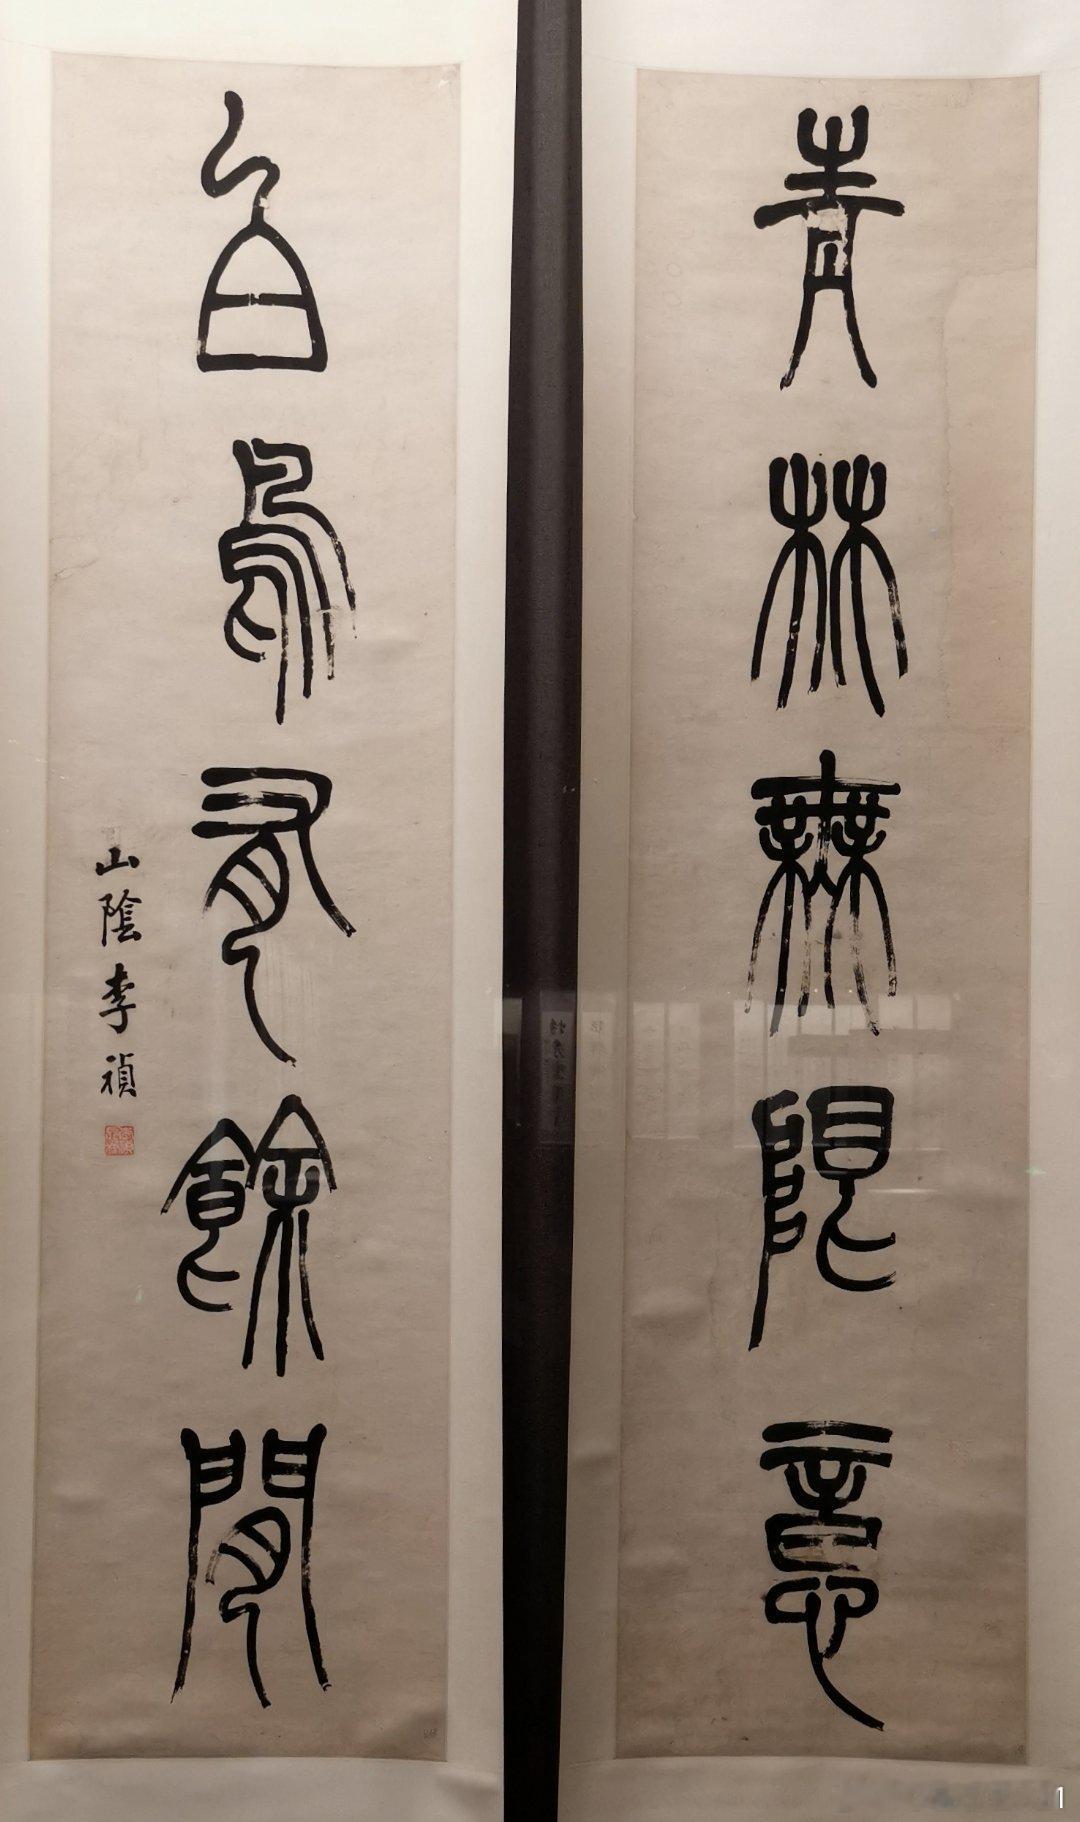 青林無限意
白鳥有餘閒
山陰李禎
1